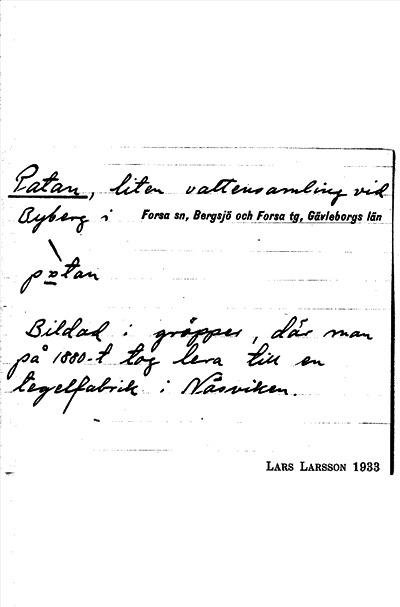 Patan, liten vattensamling vid
Byberg i Forsa sn, Bergsjö och Forsa tg, Gävleborgs län
Bildad i gröpper, där man
på 1880-t tog lera till en
tegelfabrik i Näsviken.
LARS LARSSON 1933